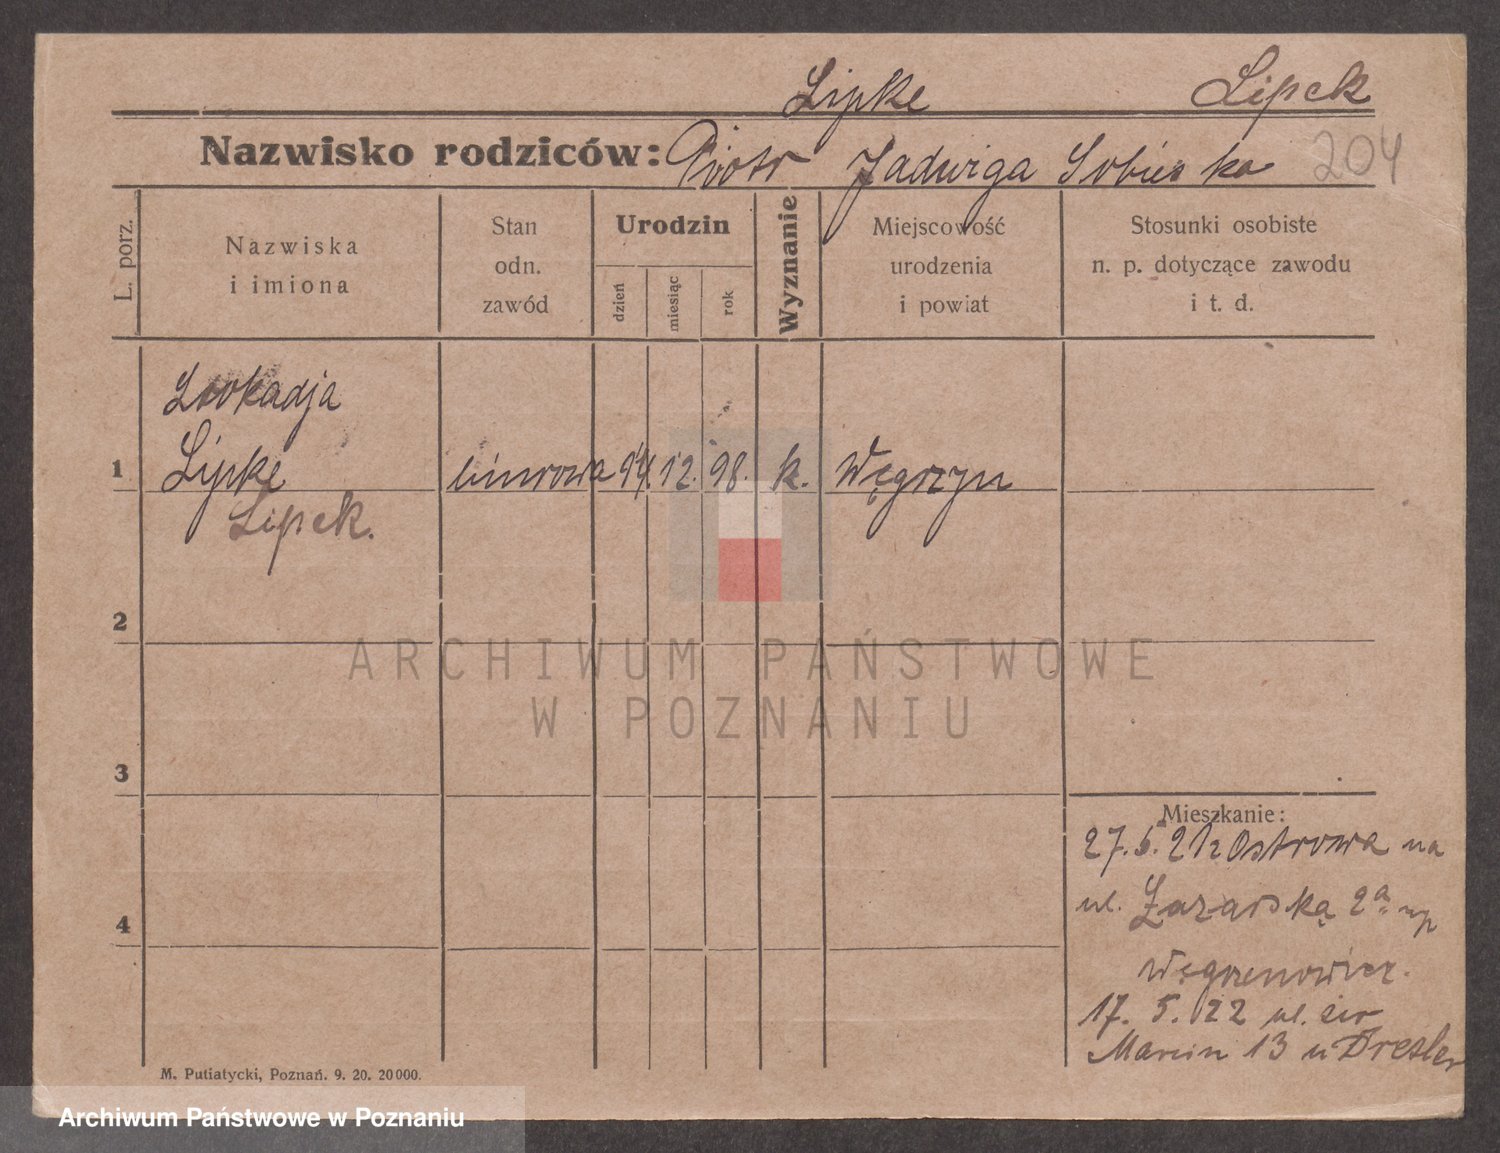 Lipke Lipek
Nazwisko rodziców: Piotr Jadwiga Sobieska 204
L. porz.
Nazwiska
i imiona
Stan
odn.
zawód
Urodzin
dzień
miesiąc
rok
Wyznanie
Miejscowość
urodzenia
i powiat
Stosunki osobiste
n. p. dotyczące zawodu
i t. d.
Leokadja
1 Lipke biurowa 14. 12. 98. k. Węgrzyn
Lipek.
2
3
4
Mieszkanie:
27. 5. 21 z Ostrowa na
ul. Łazarską 2a
Węgrzenowicz.
17. 5. 22 ul. św
Marcin 13 u Dresler
M. Putiatycki, Poznań. 9. 20. 20000.
ARCHIWUM PAŃSTWOWE
W POZNANIU
Archiwum Państwowe w Poznaniu